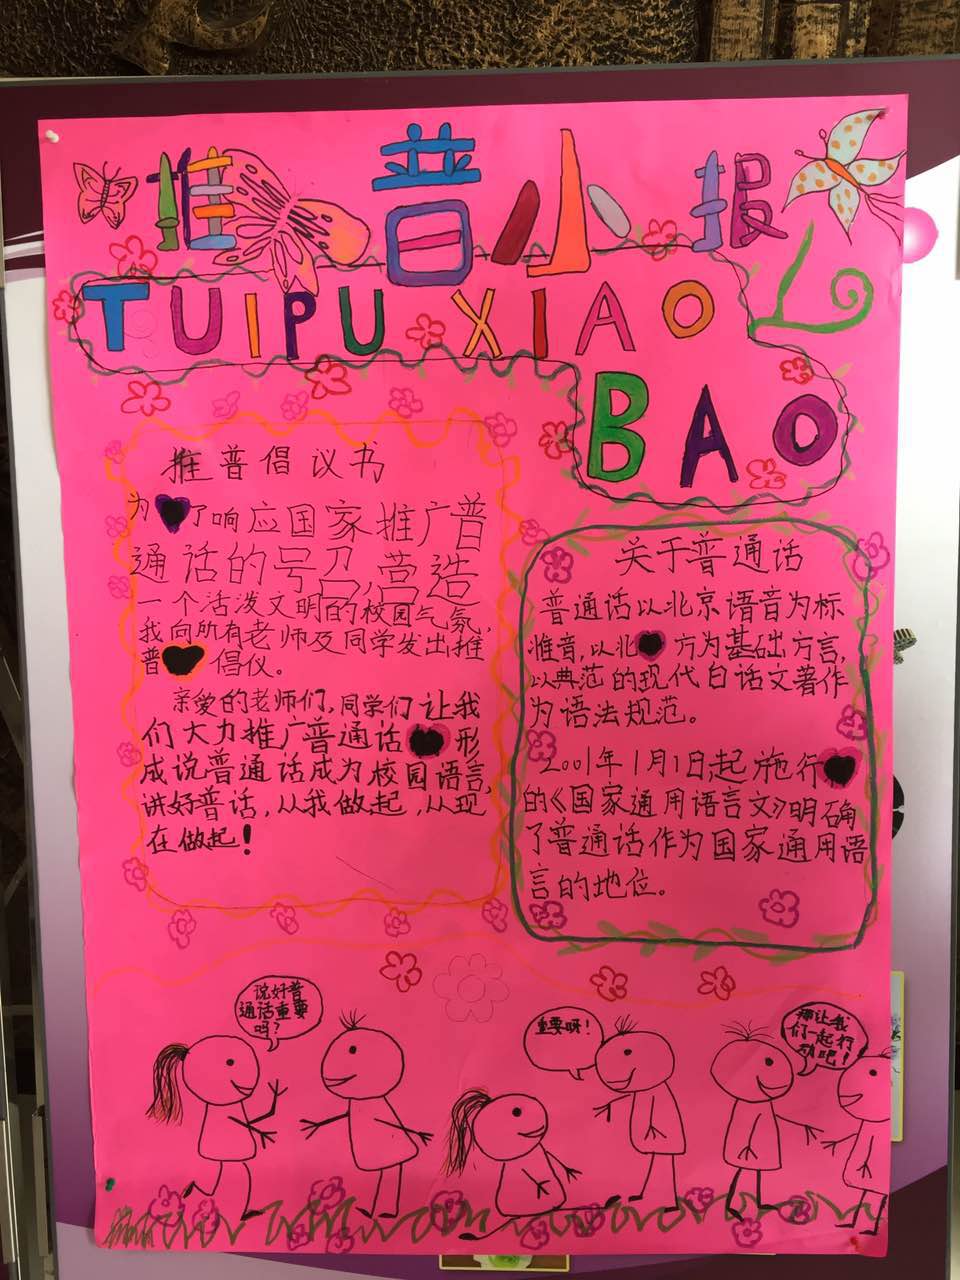 推普小报
TUIPU XIAO
BAO
推普倡议书
为了响应国家推广普
通话的号召,营造
一个活泼文明的校园气氛,
我向所有老师及同学发出推
普倡仪。
亲爱的老师们,同学们让我
们大力推广普通话形
成说普通话成为校园语言,
讲好普话,从我做起,从现
在做起!
关于普通话
普通话以北京语音为标
准音,以北方为基础方言,
以典范的现代白话文著作
为语法规范。
2001年1月1日起施行
的《国家通用语言文》明确
了普通话作为国家通用语
言的地位。
说好普
通话重要
吗?
重要呀!
那让我
们一起行
动吧!